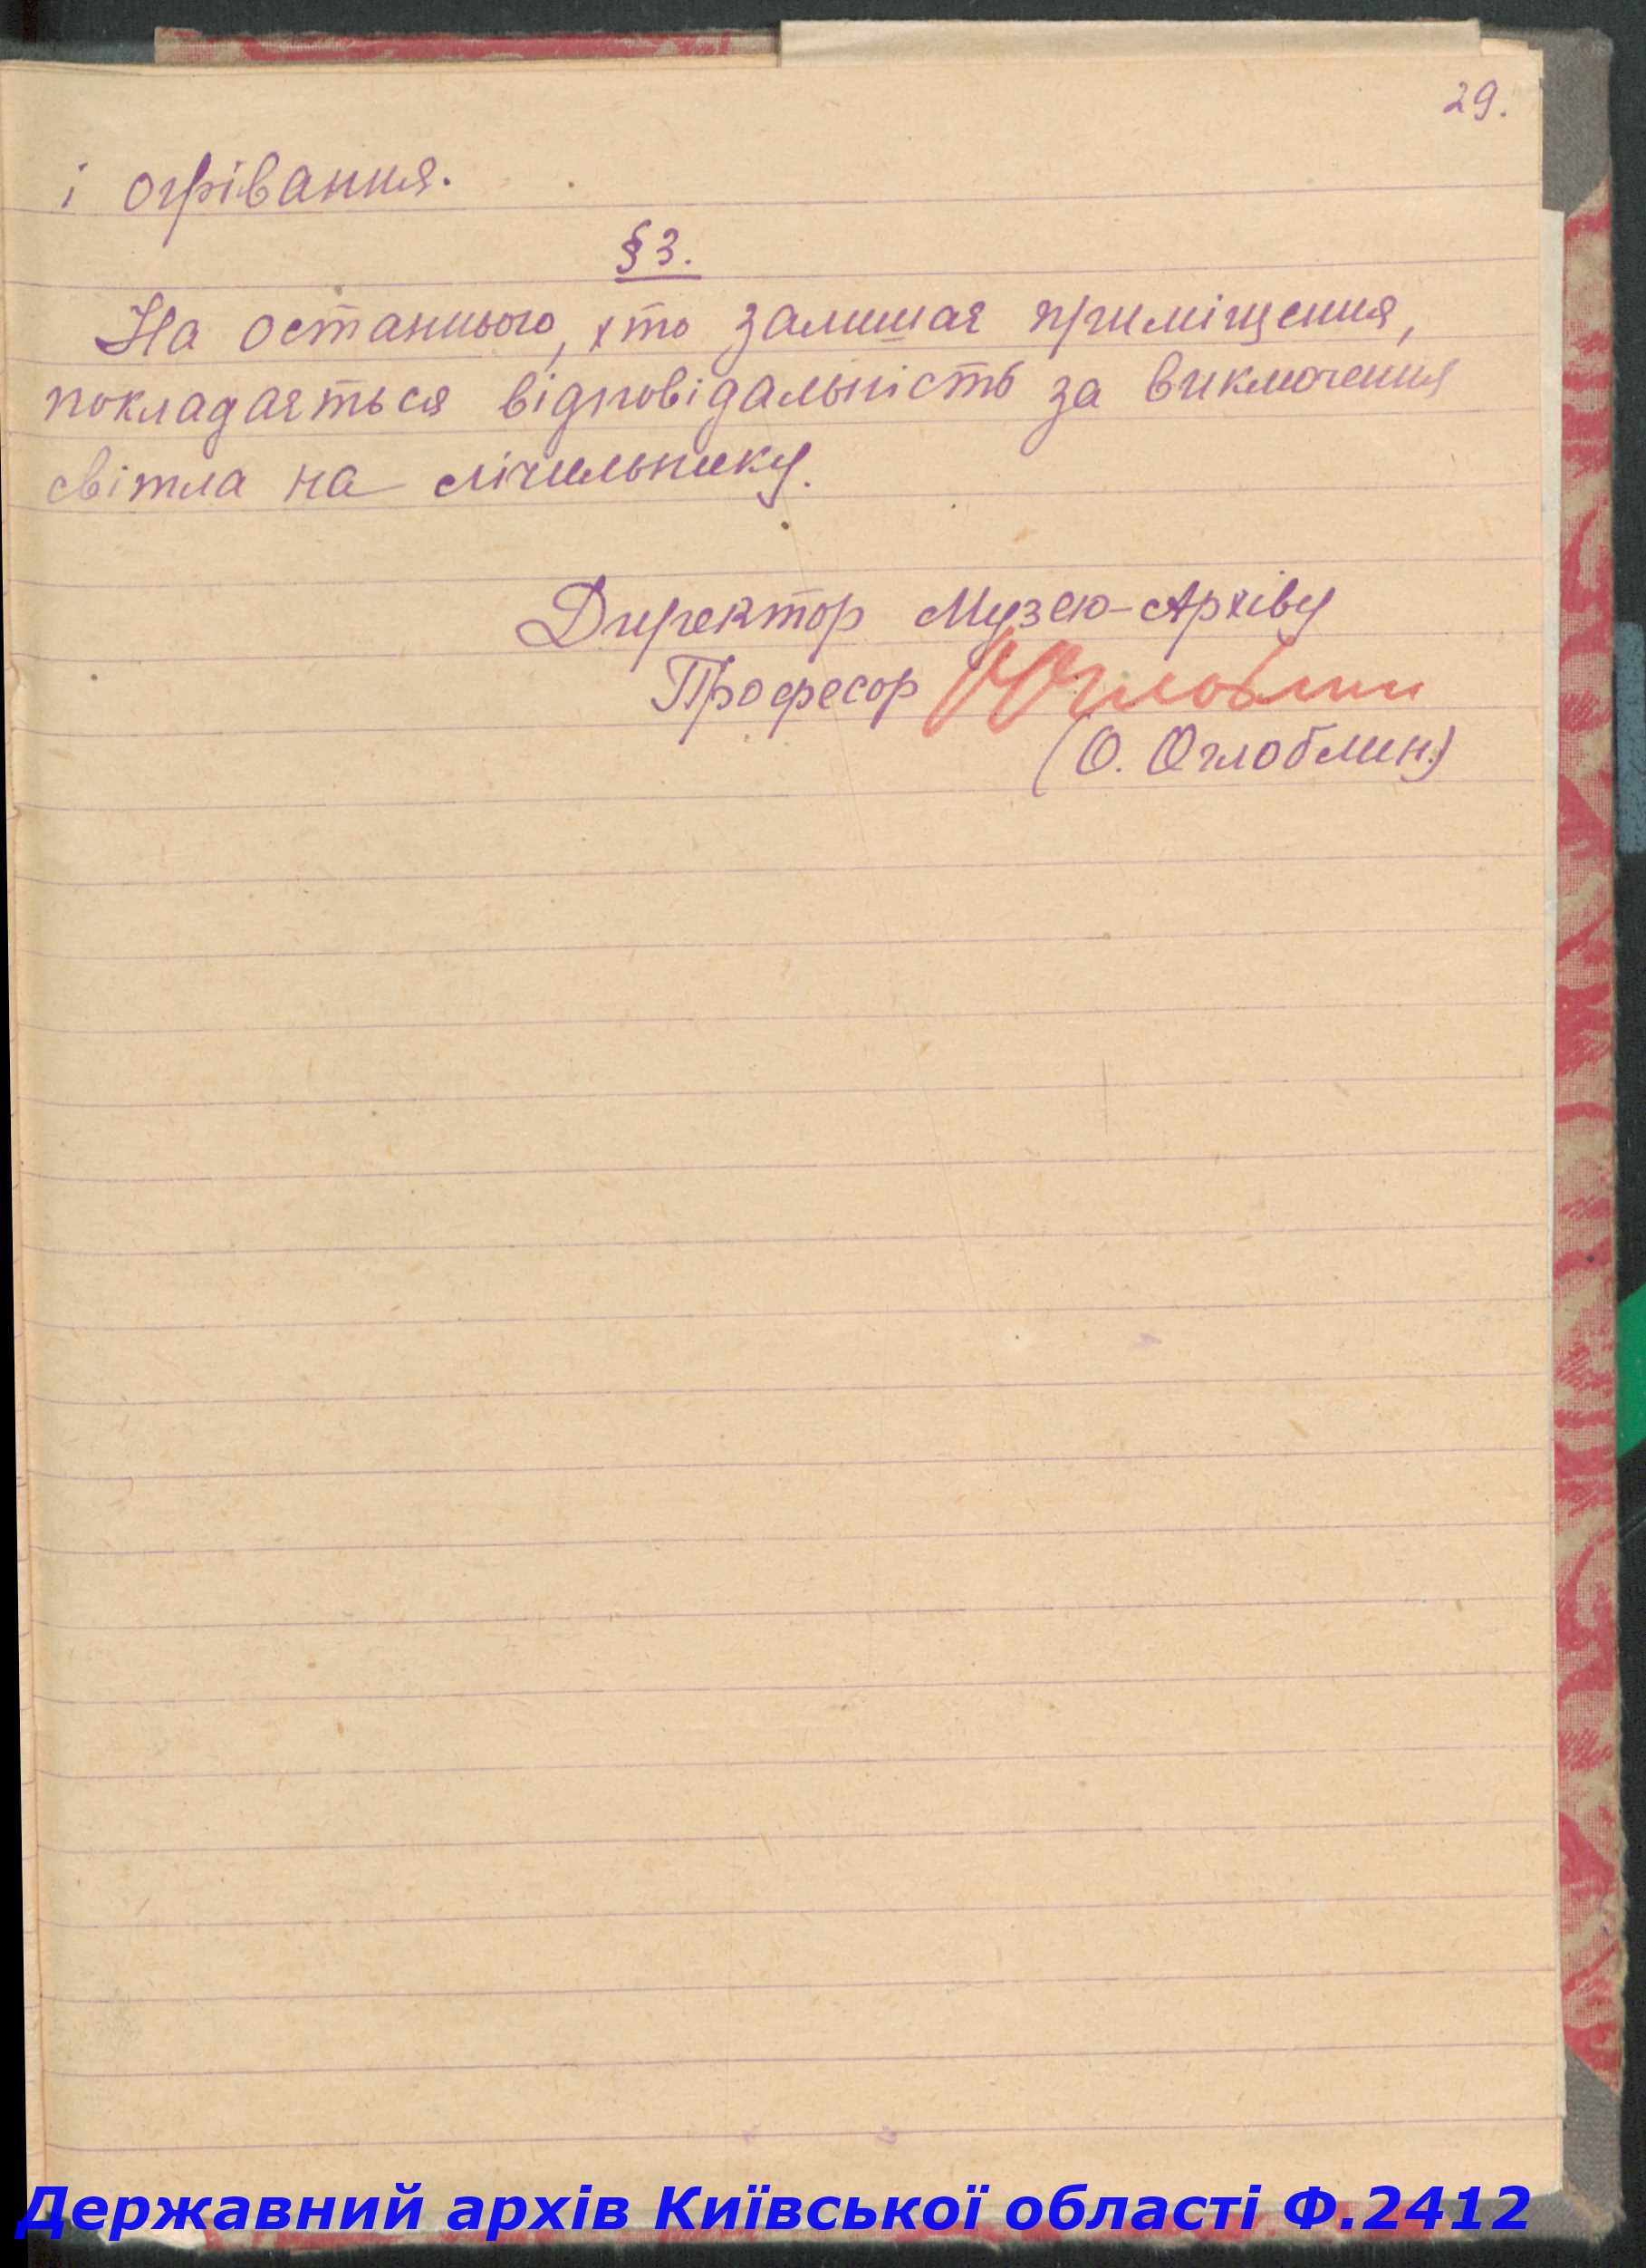 29.
і огрівання.
§ 3.
На останнього, хто залишає приміщення,
покладається відповідальність за виключення
світла на лічильнику.
Директор Музею-Архіву
Професор ООглоблин
(О. Оглоблин.)
Державний архів Київської області Ф.2412